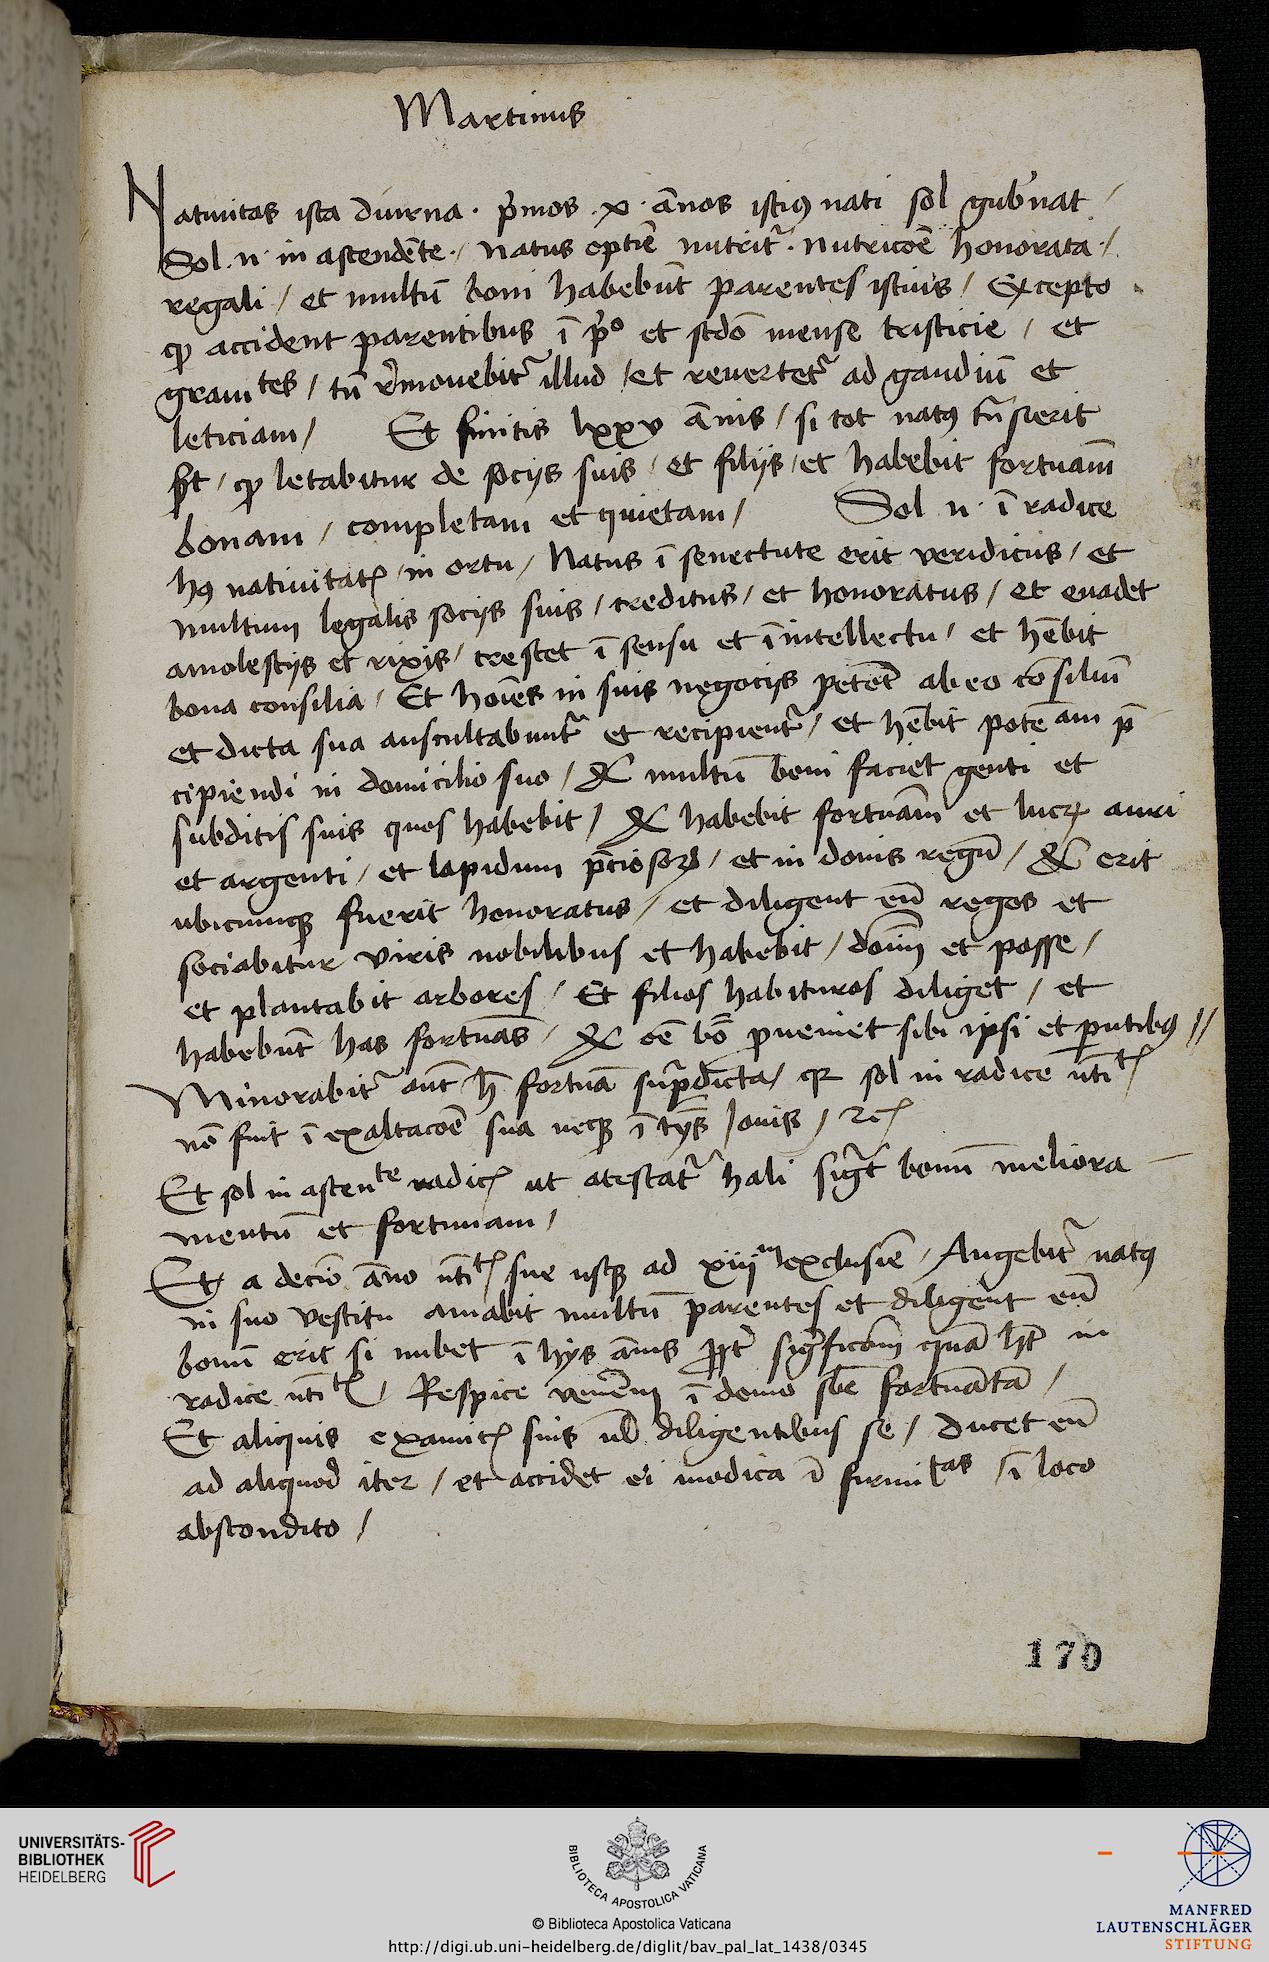 Martinus
Natiuitas ista diurna · p̄mos · x · ān̄os istiꝰ nati sol gub̓nat /
Sol · n · in ascendēte / Natus optīe nutrit᷑ · nutricōē honorata /
regali / et multū boni habebūt parentes istius / Excepto
qꝫ accident parentibus ī p̓o et scdo mense tristicie / et
grauites / tn̄ r̓mouebit᷑ illud / et reuertet᷑ ad gaudiū et
leticiam / Et finitis lxxv ānis / si tot natꝰ tn̄sierit
/ qꝫ letabitur de socijs suis / et filijs / et habebit fortunam
bonam / completam et quietam / Sol n · ī radice
hꝰ natiuitatꝭ in ortu / Natus ī senectute erit veridicus / et
multum legalis socijs suis / creditus / et honoratus / et euadet
a molestijs et rixis / crescet ī sensu et ī intellectu / et hēbit
bona consilia / Et hoīes in suis negocijs petēt ab eo cōsiliū
et dicta sua auscultabunt᷑ et recipient᷑ / et hēbit potēam p̄
cipiendi in domicilio suo / Et multū boni faciet genti et
subditis suis quos habebit / Et habebit fortunam et lucrꝫ auri
et argenti / et lapidum p̄ciosoꝝ / et in donis regū / Et erit
ubicumqꝫ fuerit honoratus / et diligent eū reges et
sociabitur viris nobilibus et habebit / dom̄ et posse /
et plantabit arbores / Et filios habituros diliget / et
habebūt has fortunas / Et oē bō proueniet sibi ipsi et pentibꝰ //
Minorabit᷑ aūt h̄ fortuā sup̄dicta / qꝛ sol in radice n̄titꝭ
nō fuit ī exaltacōē sua neqꝫ ī tijs Iouis / ꝛcꝭ
Et sol in ascente radicꝭ ut atestat᷑ hali sig̅t bonū meliora
mentū et fortunam /
Et a decīo āno n̄titꝭ sue usqꝫ ad xiiijm exclusīe / Augebit᷑ natꝰ
in suo vestitu amabit multū parentes et diligent eū
bonū erit si nubet ī hijs ānis ꝓpt̓ sig̅ficōm quā h̄t in
radice n̄titꝭ / Respice venēm ī domo sbe fortunatā /
Et aliquis ex amicꝭ suis ul̄ diligentibus se / ducet eū
ad aliquod iter / et accidet ei modica ī firmitas / ī loco
abscondito /
170
UNIVERSITÄTS-
BIBLIOTHEK
HEIDELBERG
BIBLIOTECA APOSTOLICA VATICANA
© Biblioteca Apostolica Vaticana
http://digi.ub.uni-heidelberg.de/diglit/bav_pal_lat_1438/0345
MANFRED
LAUTENSCHLÄGER
STIFTUNG